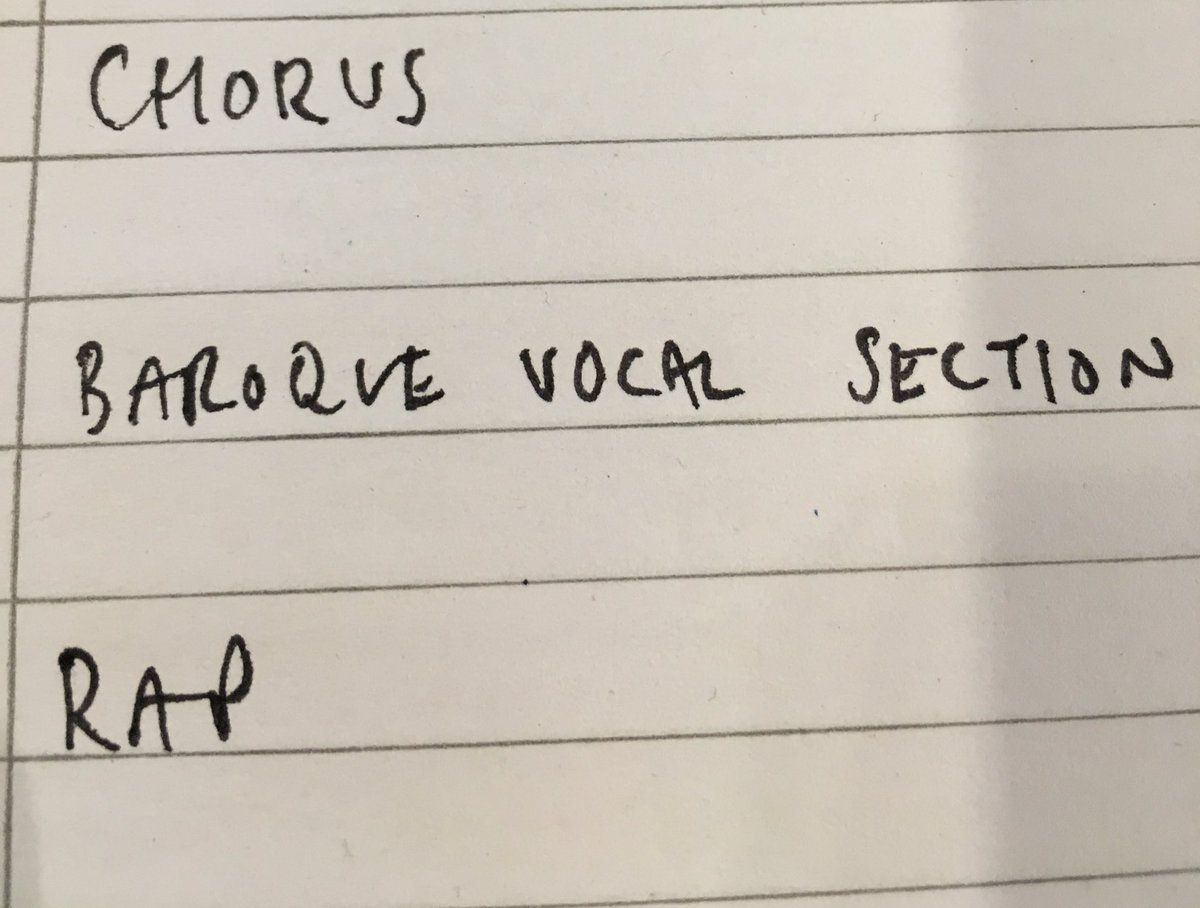 CHORUS
BAROQUE VOCAL SECTION
RAP